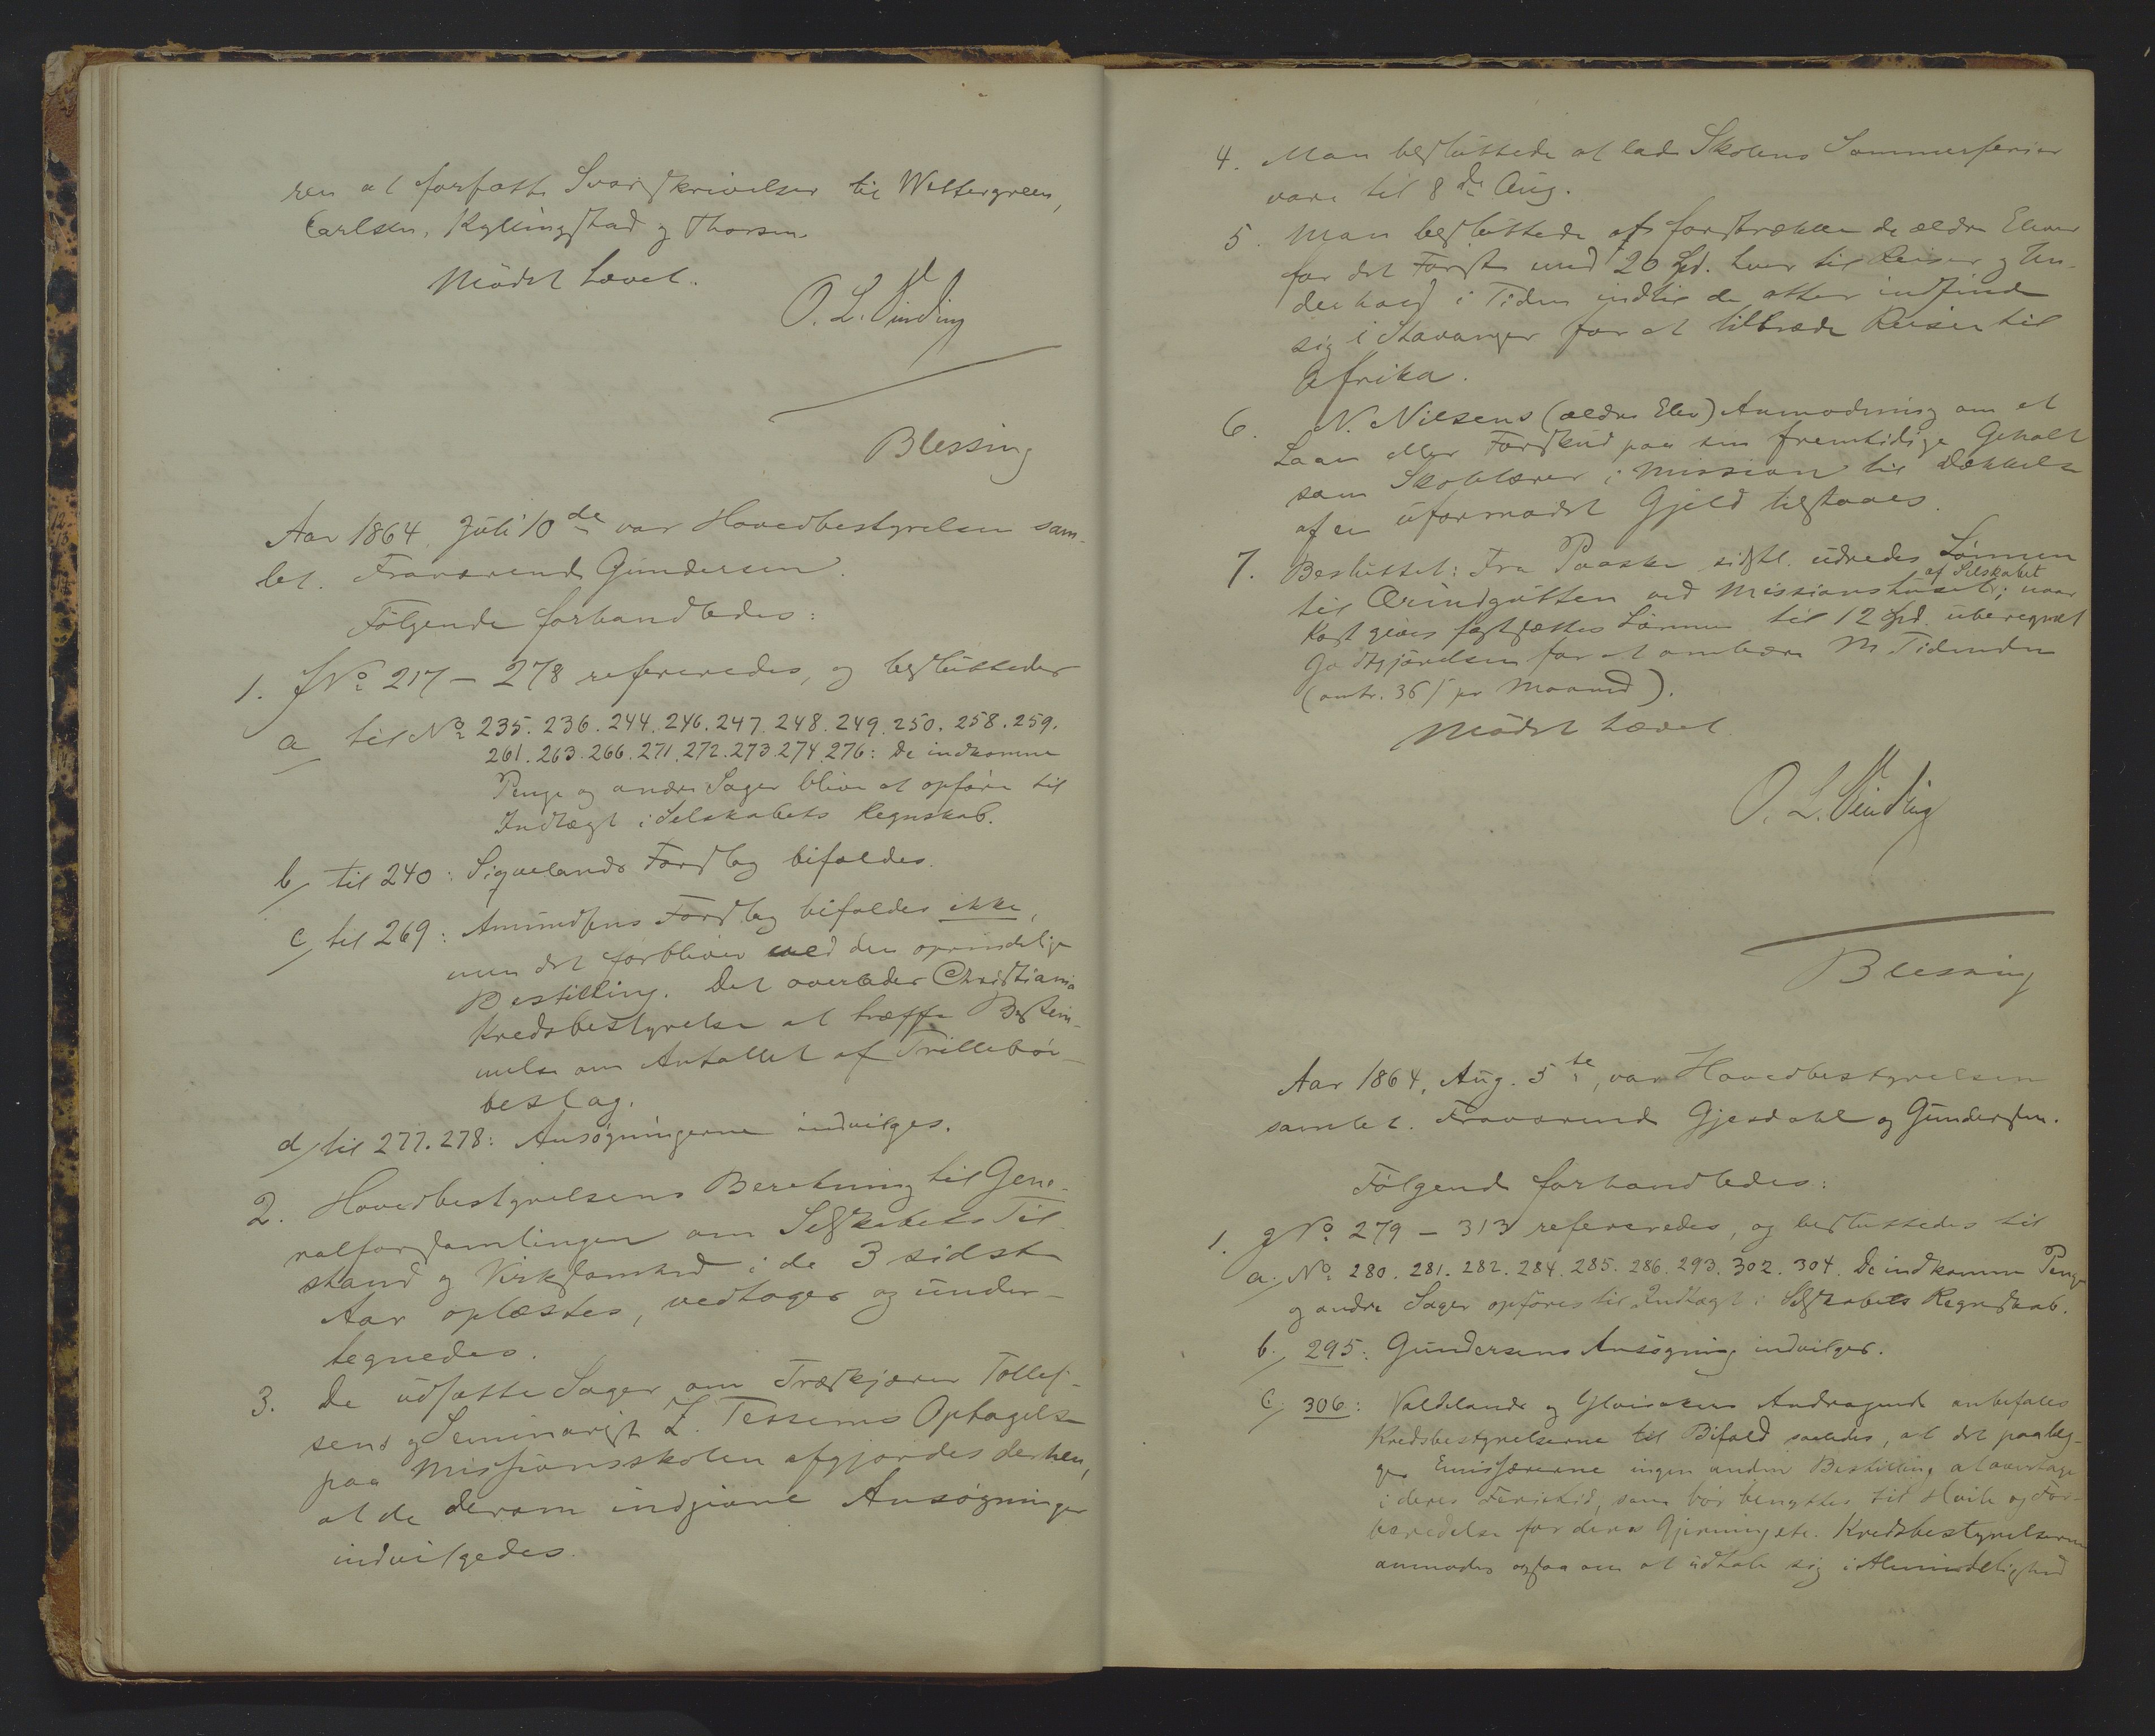 ren at forfatte Svarskrivelser til Wettergreen,
Carlsen, Kyllingstad og Thorsen
Mödet hævet.
O. L. Vinding
Blessing
Aar 1864, Juli 10de var Hovedbestyrelsen sam-
let. Fraværende Gundersen.
Fölgende forhandledes:
1. JNo 217 – 278 refereredes, og besluttedes
a/ til No 235. 236. 244. 246. 247. 248. 249. 250. 258. 259.
261. 263. 266. 271. 272. 273. 274. 276: De indkomne
Penge og andre Sager blive at opföre til
Indtægt i Selskabets Regnskab.
b/ til 240: Sigvelands Forslag bifaldes.
c/ til 269: Amundsens Forslag bifaldes ikke,
men det forbliver ved den oprindelige
Bestilling. Det overlades Christiania
Kredsbestyrelse at træffe Bestem-
melse om Antallet af Trillebör-
beslag.
d/ til 277. 278: Ansögningerne indvilges.
2. Hovedbestyrelsens Beretning til Gene-
ralforsamlingen om Selskabets Til-
stand og Virksomhed i de 3 sidste
Aar oplæstes, vedtoges og under-
tegnedes.
3. De udsatte Sager om Træskjærer Tollef-
sens og Seminarist L. Tessems Optagelse
paa Missionsskolen afgjordes derhen,
at de derom indgivne Ansögninger
indvilgedes.
4. Man besluttede at lade Skolens Sommerferier
vare til 8de Aug.
5. Man besluttede at forstrække de ældre Elever
for det Förste med 20 Spd. hver til Reiser og Un-
derhold i Tiden indtil de atter indfinde
sig i Stavanger for at tiltræde Reisen til
Afrika.
6. N. Nilsens (ældre Elev) Anmodning om et
Laan eller Forskud paa sin fremtidige Gehalt
som Skolelærer i Missionen til Dækkelse
af en uformodet Gjeld tilstaaes.
7. Besluttet: Fra Paaske sidstl. udredes Lönnen
af Selskabet
til Ærindgutten ved Missionshuset; naar
Kost gives fastsættes Lönnen til 12 Spd. uberegnet
Godtgjörelsen for at ombære M Tidende
(omtr. 36 ſ pr Maaned).
Mödet hævet.
O. L. Vinding
Blessing
Aar 1864, Aug. 5te, var Hovedbestyrelsen
samlet. Fraværende Gjesdahl og Gundersen.
Fölgende forhandledes:
1. JNo 279 – 313 refereredes, og besluttedes til
a. No 280. 281. 282. 284. 285. 286. 293. 302. 304. De indkomne Penge
og andre Sager opföres til Indtægt i Selskabets Regnskab.
b./ 295: Gundersens Ansögning indvilges.
c/ 306: Valdelands og Andragende anbefales
Kredsbestyrelserne til Bifald saaledes, at det paalæg-
ges Emissærerne ingen anden Bestilling at overtage
i deres Ferietid, som bör benyttes til Hvile og For-
beredelse for deres Gjerning etc. Kredsbestyrelserne
anmodes ogsaa om at udtale sig i Almindelighed